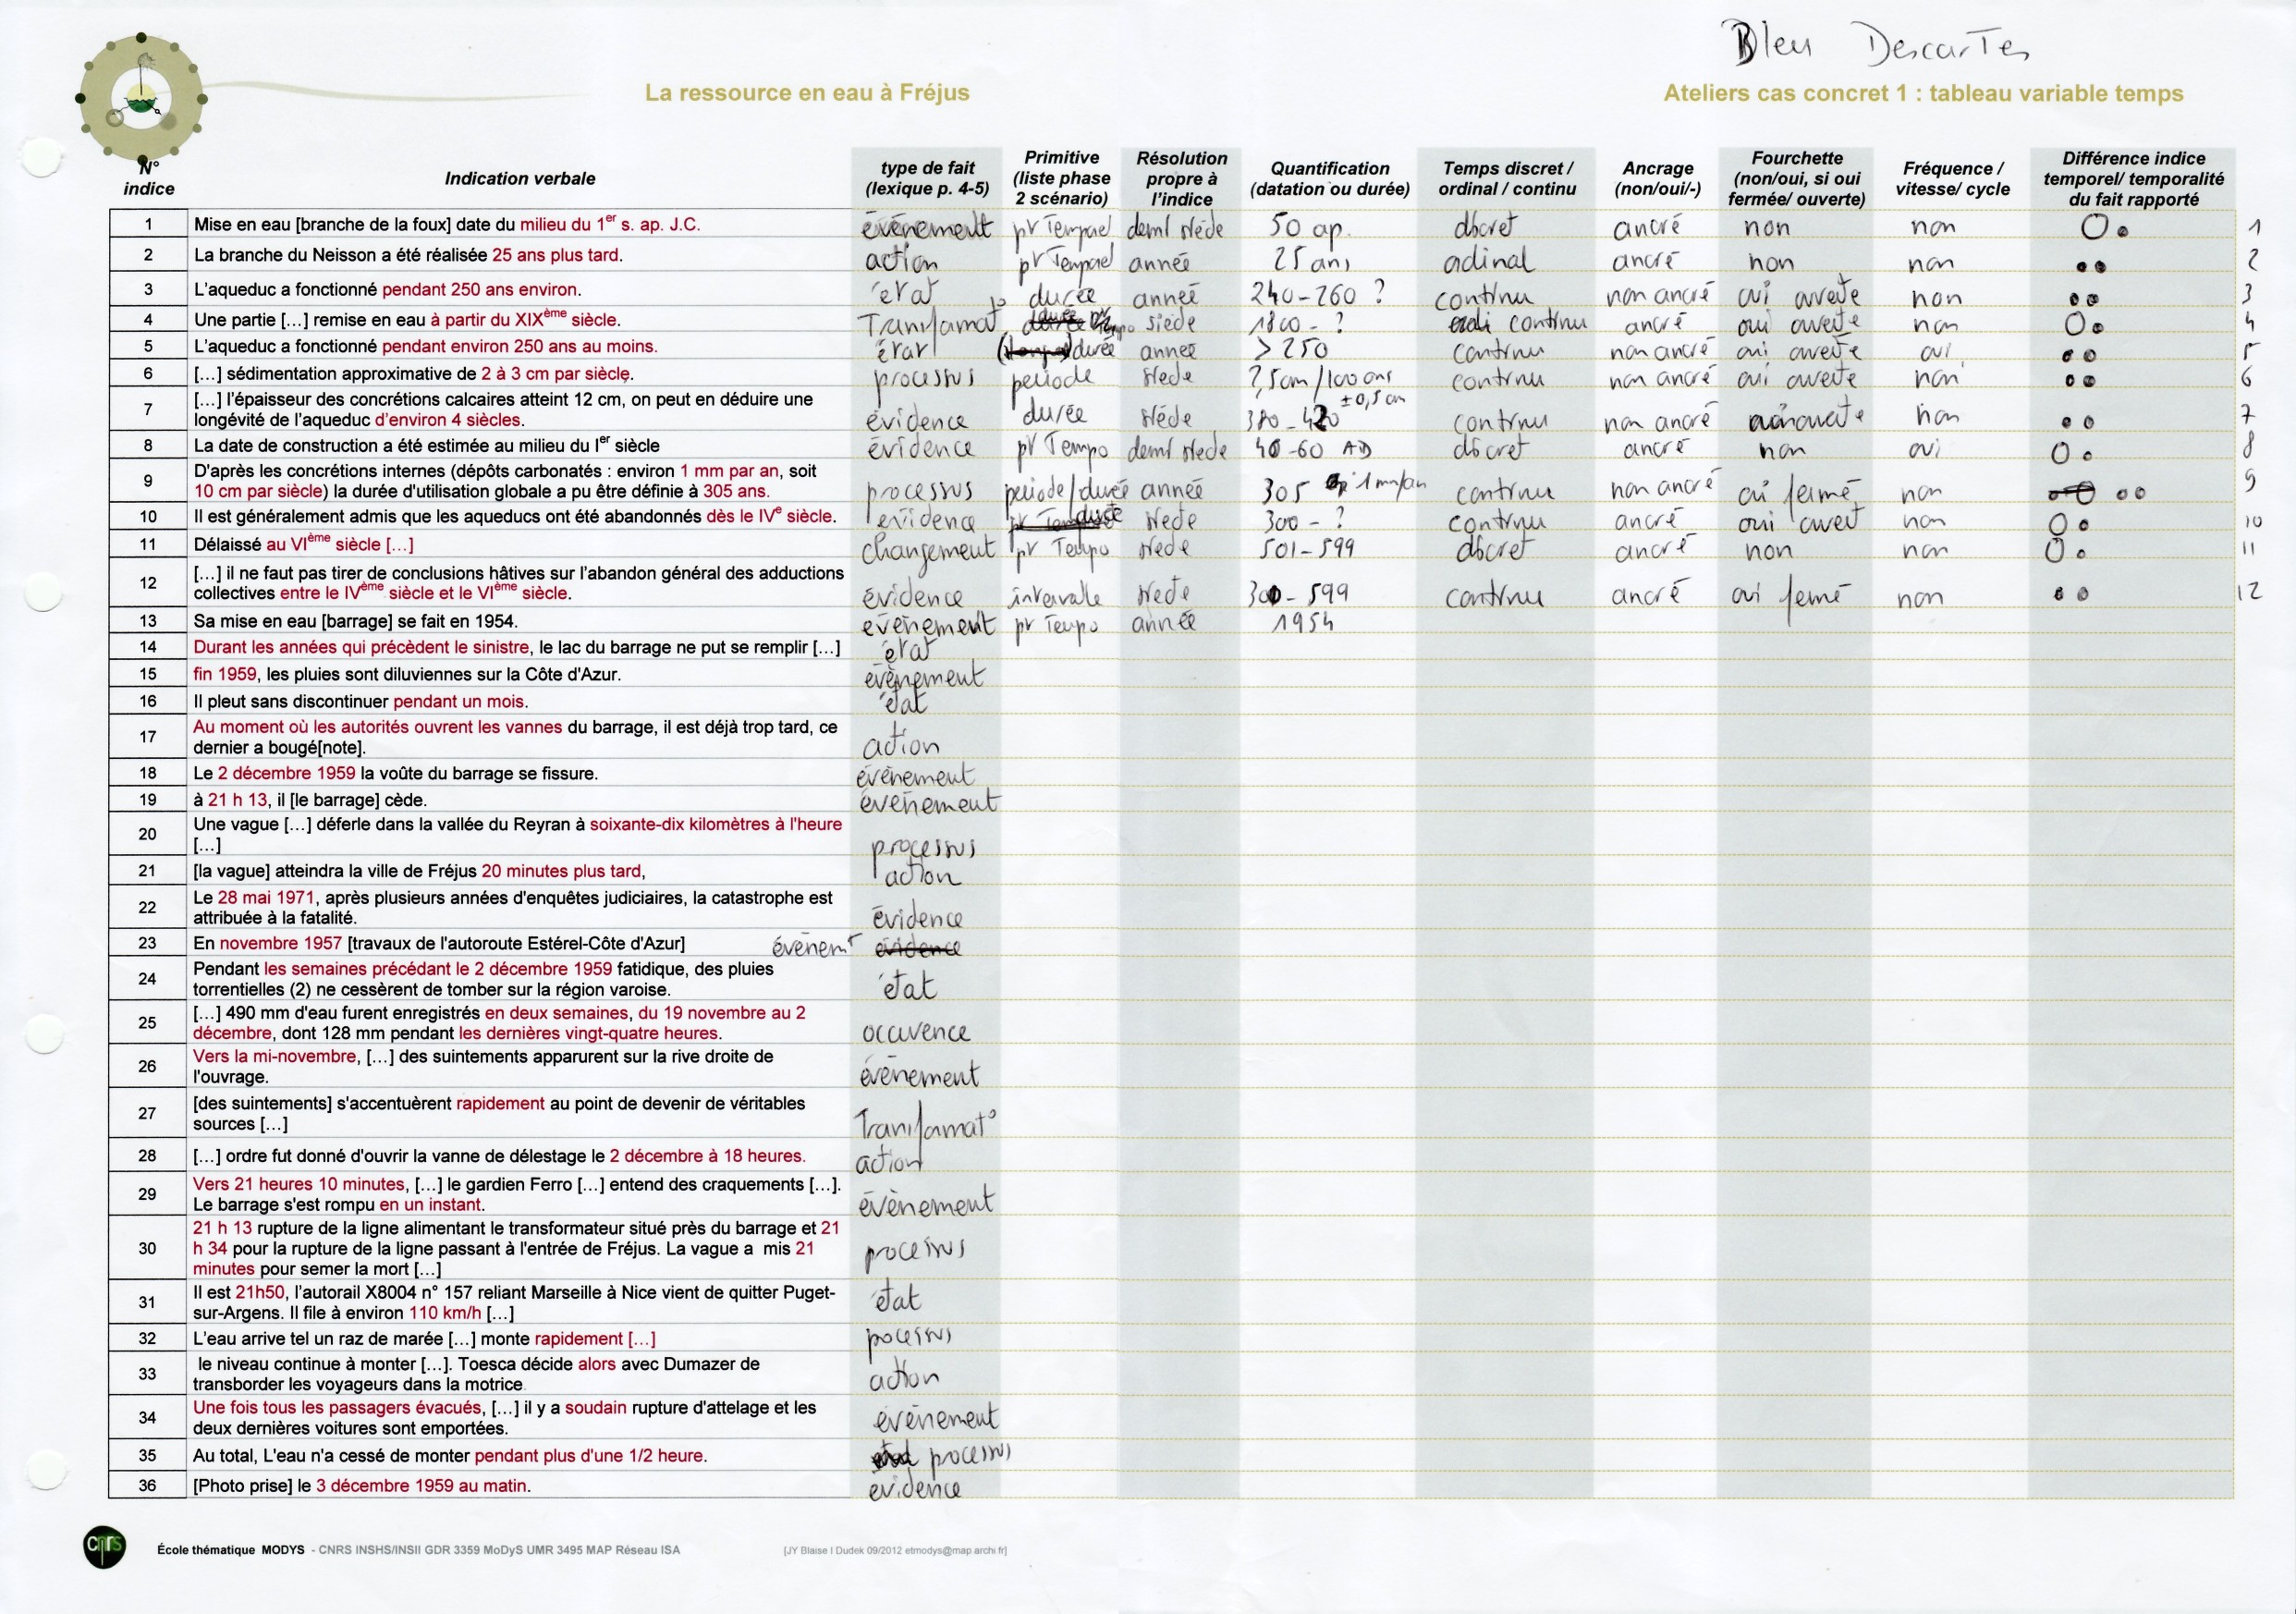 Bleu Descartes
La ressource en eau à Fréjus
Ateliers cas concret 1 : tableau variable temps
N° indice
Indication verbale
type de fait (lexique p. 4-5)
Primitive (liste phase 2 scénario)
Résolution propre à l'indice
Quantification (datation ou durée)
Temps discret / ordinal / continu
Ancrage (non/oui/-)
Fourchette (non/oui, si oui fermée/ ouverte)
Fréquence / vitesse/ cycle
Différence indice temporel/ temporalité du fait rapporté
1 Mise en eau [branche de la foux] date du milieu du 1er s. ap. J.C. évènement pt Temporel demi siècle 50 ap. discret ancré non non 1
2 La branche du Neisson a été réalisée 25 ans plus tard. action pt Temporel année 25 ans ordinal ancré non non 2
3 L'aqueduc a fonctionné pendant 250 ans environ. état durée année 240-260 ? continu non ancré oui ouverte non 3
4 Une partie [...] remise en eau à partir du XIXème siècle. Transformat° siècle 1800 - ? continu ancré oui ouverte non 4
5 L'aqueduc a fonctionné pendant environ 250 ans au moins. état durée année > 250 continu non ancré oui ouverte oui 5
6 [...] sédimentation approximative de 2 à 3 cm par siècle. processus periode siècle 2,5cm/100 ans ±0,5 cm continu non ancré oui ouverte non 6
7 [...] l'épaisseur des concrétions calcaires atteint 12 cm, on peut en déduire une
longévité de l'aqueduc d'environ 4 siècles. évidence durée siècle 380-420 continu non ancré non 7
8 La date de construction a été estimée au milieu du Ier siècle évidence pt Tempo demi siècle 40-60 AD discret ancré non oui 8
9 D'après les concrétions internes (dépôts carbonatés : environ 1 mm par an, soit
10 cm par siècle) la durée d'utilisation globale a pu être définie à 305 ans. processus periode/durée année 305 1mm/an continu non ancré oui fermé non 9
10 Il est généralement admis que les aqueducs ont été abandonnés dès le IVe siècle. evidence durée siècle 300 - ? continu ancré oui ouvert non 10
11 Délaissé au VIème siècle [...] changement pt Tempo siècle 501-599 discret ancré non non 11
12 [...] il ne faut pas tirer de conclusions hâtives sur l'abandon général des adductions
collectives entre le IVème siècle et le VIème siècle. évidence intervalle siècle 300-599 continu ancré oui fermé non 12
13 Sa mise en eau [barrage] se fait en 1954. evènement pt Tempo année 1954
14 Durant les années qui précèdent le sinistre, le lac du barrage ne put se remplir [...] état
15 fin 1959, les pluies sont diluviennes sur la Côte d'Azur. evènement
16 Il pleut sans discontinuer pendant un mois. état
17 Au moment où les autorités ouvrent les vannes du barrage, il est déjà trop tard, ce
dernier a bougé[note]. action
18 Le 2 décembre 1959 la voûte du barrage se fissure. évènement
19 à 21 h 13, il [le barrage] cède. évènement
20 Une vague [...] déferle dans la vallée du Reyran à soixante-dix kilomètres à l'heure
[...] processus
21 [la vague] atteindra la ville de Fréjus 20 minutes plus tard, action
22 Le 28 mai 1971, après plusieurs années d'enquêtes judiciaires, la catastrophe est
attribuée à la fatalité. évidence
23 En novembre 1957 [travaux de l'autoroute Estérel-Côte d'Azur] évènemt evidence
24 Pendant les semaines précédant le 2 décembre 1959 fatidique, des pluies
torrentielles (2) ne cessèrent de tomber sur la région varoise. état
25 [...] 490 mm d'eau furent enregistrés en deux semaines, du 19 novembre au 2
décembre, dont 128 mm pendant les dernières vingt-quatre heures. occurence
26 Vers la mi-novembre, [...] des suintements apparurent sur la rive droite de
l'ouvrage. évènement
27 [des suintements] s'accentuèrent rapidement au point de devenir de véritables
sources [...] Transformat°
28 [...] ordre fut donné d'ouvrir la vanne de délestage le 2 décembre à 18 heures. action
29 Vers 21 heures 10 minutes, [...] le gardien Ferro [...] entend des craquements [...].
Le barrage s'est rompu en un instant. évènement
30 21 h 13 rupture de la ligne alimentant le transformateur situé près du barrage et 21
h 34 pour la rupture de la ligne passant à l'entrée de Fréjus. La vague a mis 21
minutes pour semer la mort [...] processus
31 Il est 21h50, l'autorail X8004 n° 157 reliant Marseille à Nice vient de quitter Puget-
sur-Argens. Il file à environ 110 km/h [...] état
32 L'eau arrive tel un raz de marée [...] monte rapidement [...] pocessus
33 le niveau continue à monter [...]. Toesca décide alors avec Dumazer de
transborder les voyageurs dans la motrice action
34 Une fois tous les passagers évacués, [...] il y a soudain rupture d'attelage et les
deux dernières voitures sont emportées. évènement
35 Au total, L'eau n'a cessé de monter pendant plus d'une 1/2 heure. processus
36 [Photo prise] le 3 décembre 1959 au matin. evidence
cnrs
École thématique MODYS - CNRS INSHS/INSII GDR 3359 MoDyS UMR 3495 MAP Réseau ISA
[JY Blaise I Dudek 09/2012 etmodys@map.archi.fr]